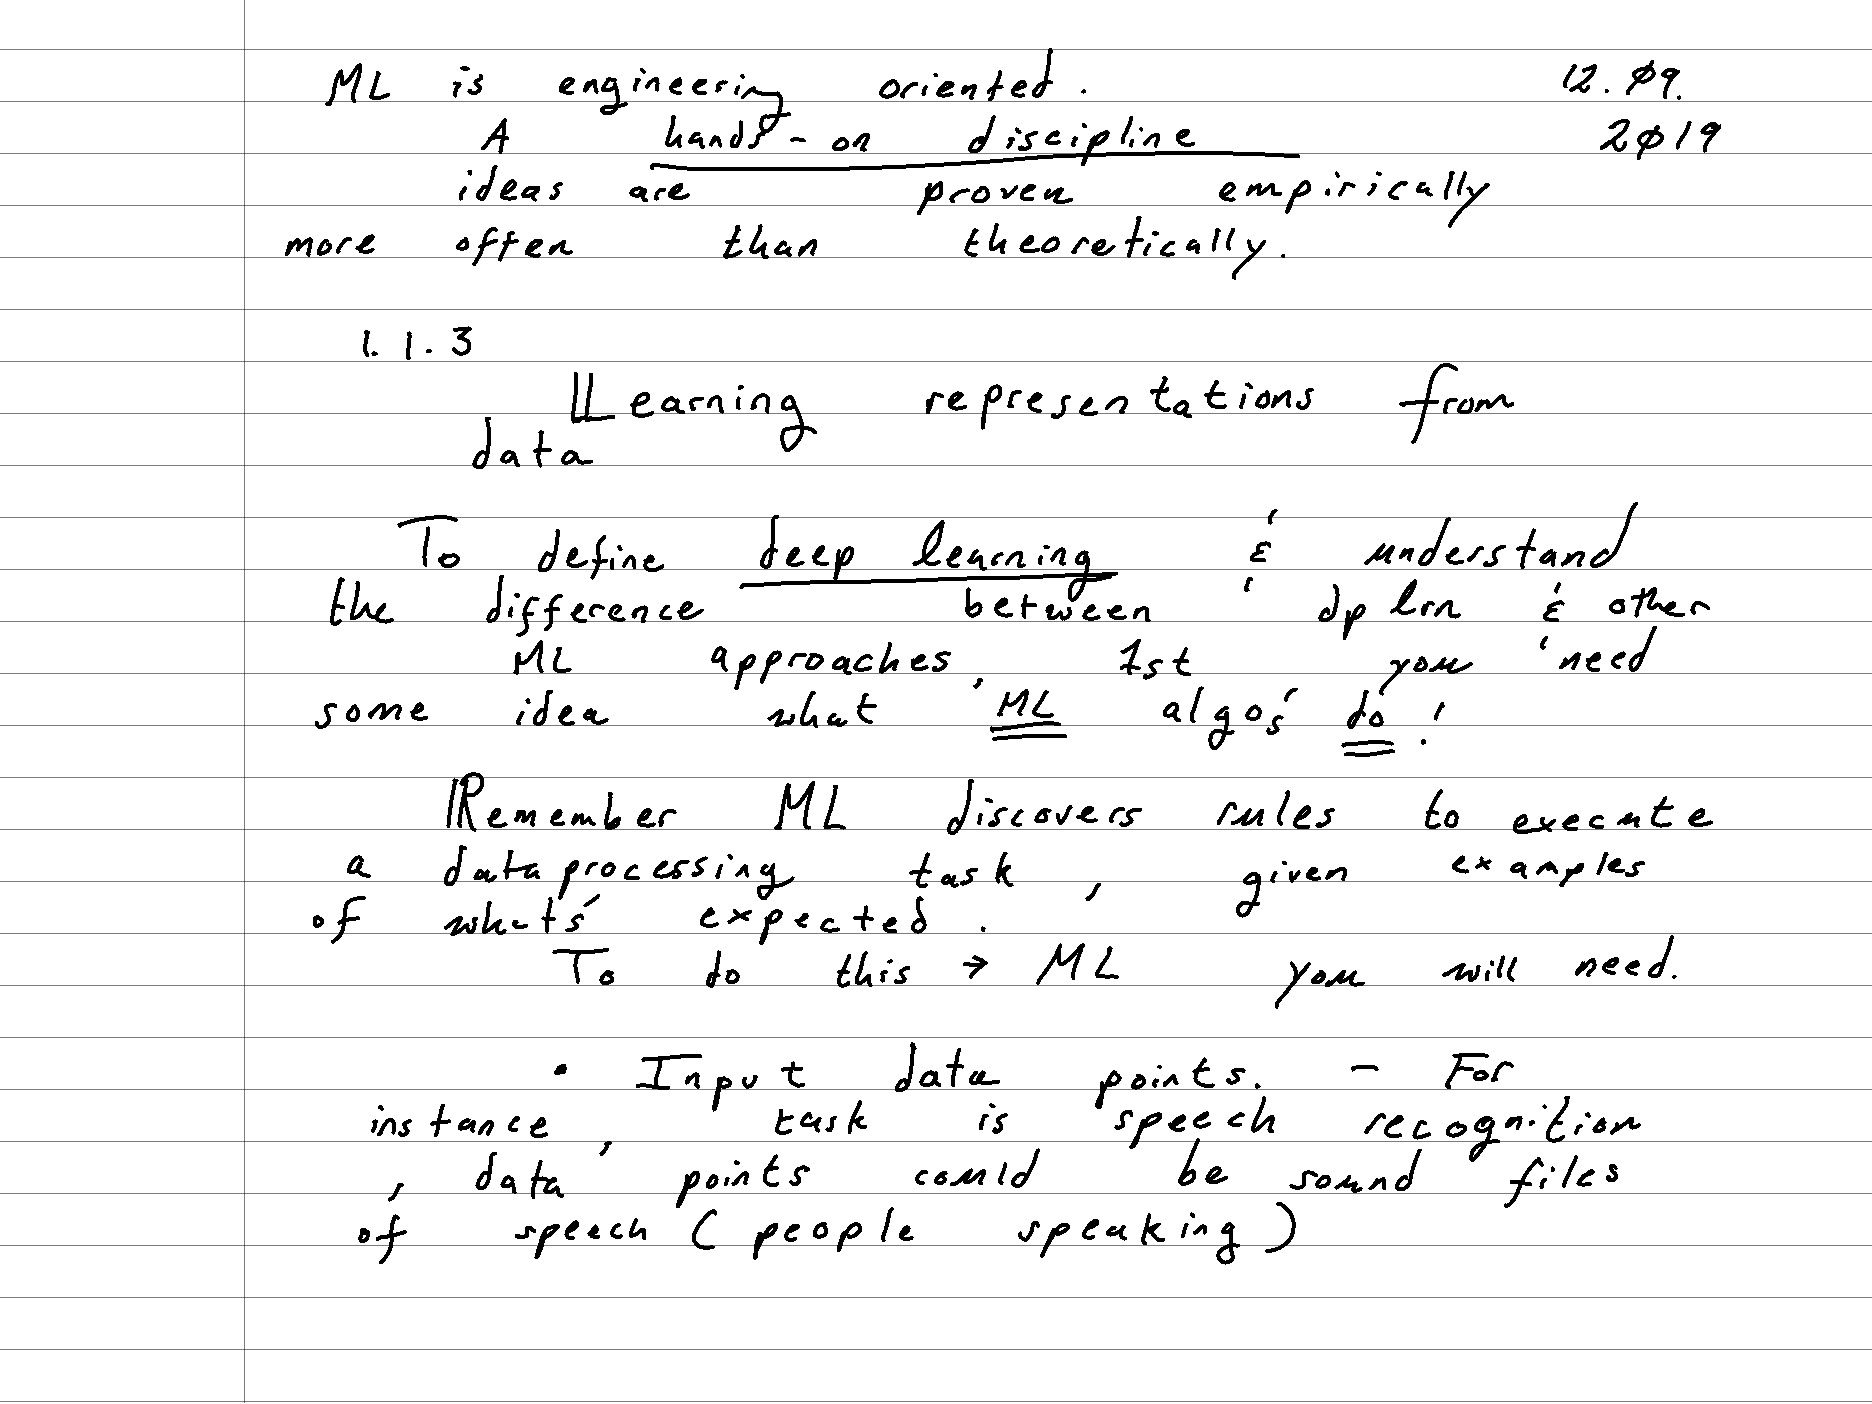 ML is engineering oriented. 12.09.
A hands-on discipline 2019
ideas are proven empirically
more often than theoretically.
1.1.3
Learning representations from
data
To define deep learning & understand
the difference between dp lrn & other
ML approaches, 1st you need
some idea what ML algos' do!
Remember ML discovers rules to execute
a dataprocessing task, given examples
of whats' expected.
To do this → ML you will need.
• Input data points. - For
instance, task is speech recognition
, data points could be sound files
of speech (people speaking)